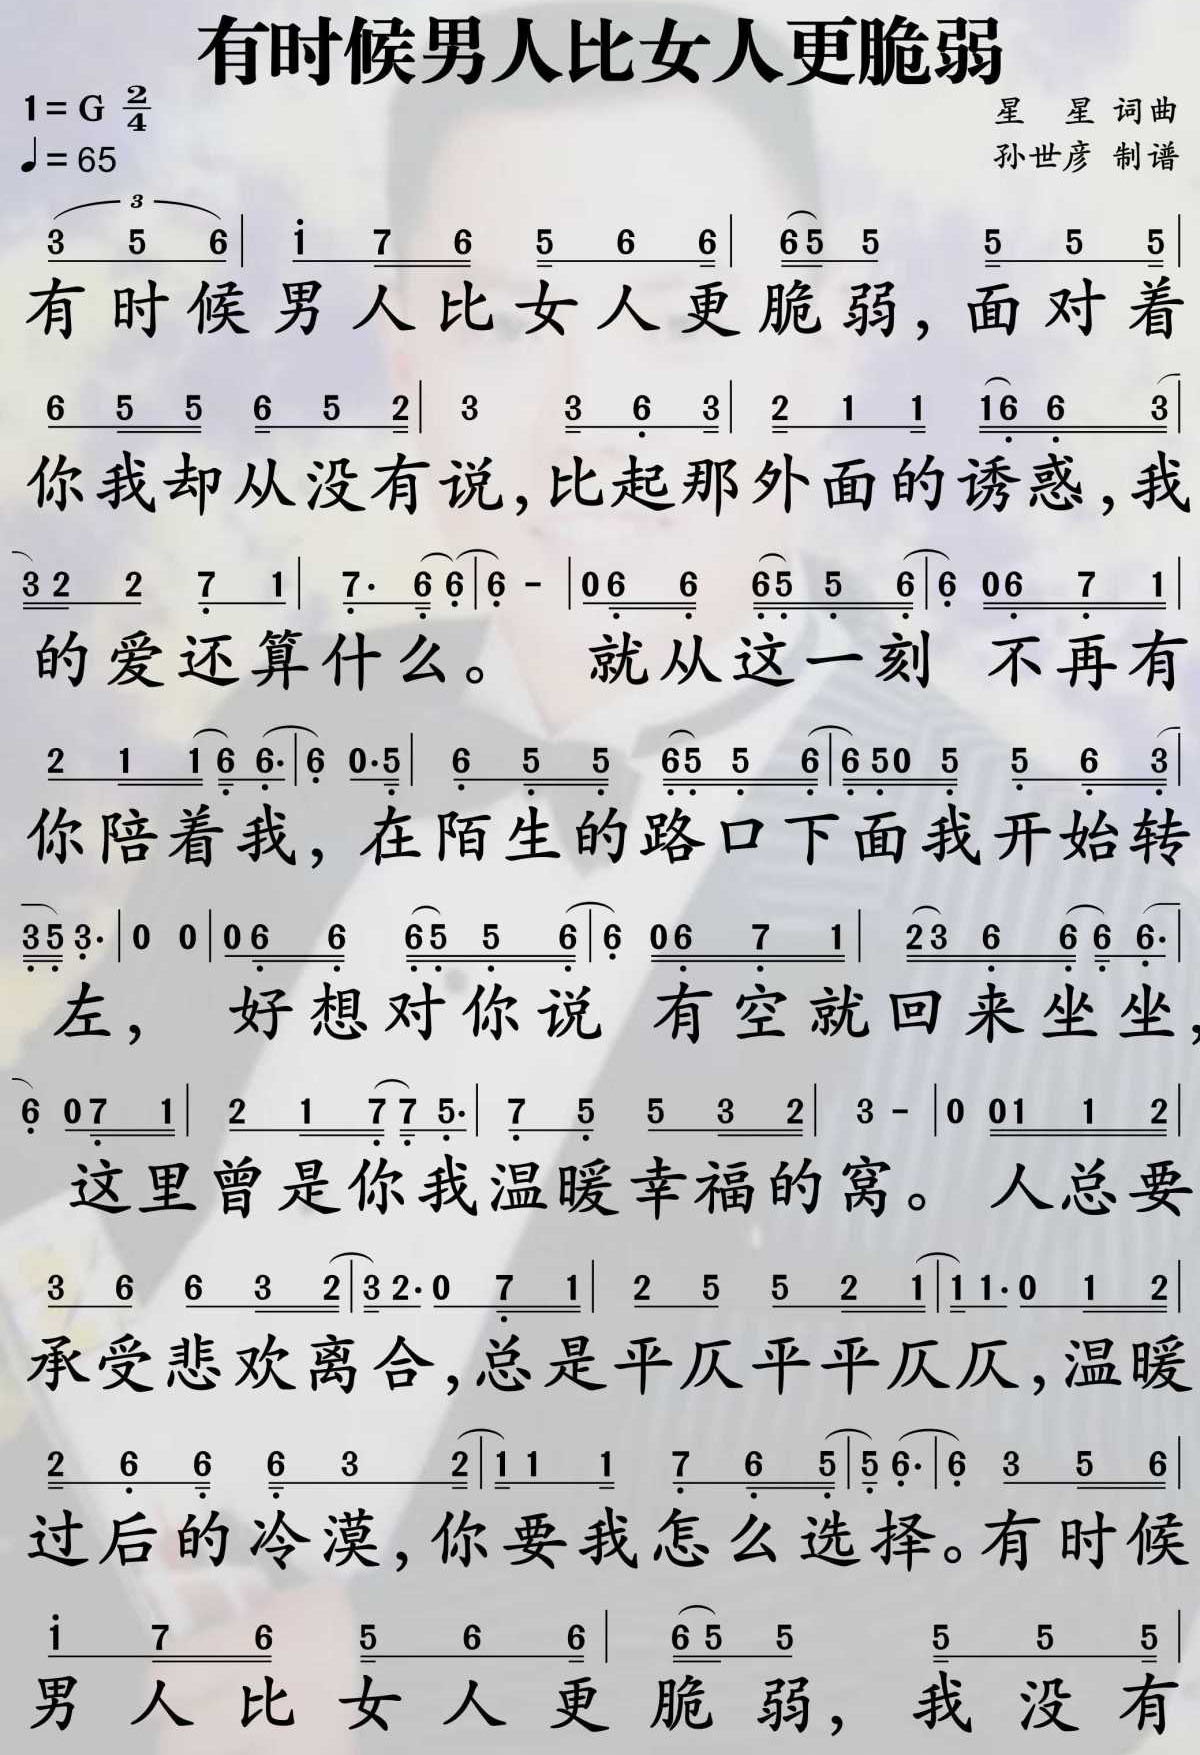 有时候男人比女人更脆弱
1=G 2/4
星 星 词曲
♩=65
孙世彦 制谱
3
3 5 6 | 1 7 6 5 6 6 | 6 5 5 5 5 5 |
有时候男人比女人更脆弱，面对着
6 5 5 6 5 2 | 3 3 6 3 | 2 1 1 1 6 6 3 |
你我却从没有说，比起那外面的诱惑，我
3 2 2 7 1 | 7· 6 6 | 6 - | 0 6 6 6 5 5 6 | 6 0 6 7 1 |
的爱还算什么。 就从这一刻 不再有
2 1 1 6 6· | 6 0· 5 | 6 5 5 6 5 5 6 | 6 5 0 5 5 6 3 |
你陪着我，在陌生的路口下面我开始转
3 5 3· | 0 0 | 0 6 6 6 5 5 6 | 6 0 6 7 1 | 2 3 6 6 6 6· |
左， 好想对你说 有空就回来坐坐，
6 0 7 1 | 2 1 7 7 5· | 7 5 5 3 2 | 3 - | 0 0 1 1 2 |
这里曾是你我温暖幸福的窝。 人总要
3 6 6 3 2 | 3 2· 0 7 1 | 2 5 5 2 1 | 1 1· 0 1 2 |
承受悲欢离合，总是平仄平平仄仄，温暖
2 6 6 6 3 2 | 1 1 1 7 6 5 | 5 6· | 6 3 5 6 |
过后的冷漠，你要我怎么选择。有时候
1 7 6 5 6 6 | 6 5 5 5 5 5 |
男人比女人更脆弱，我没有